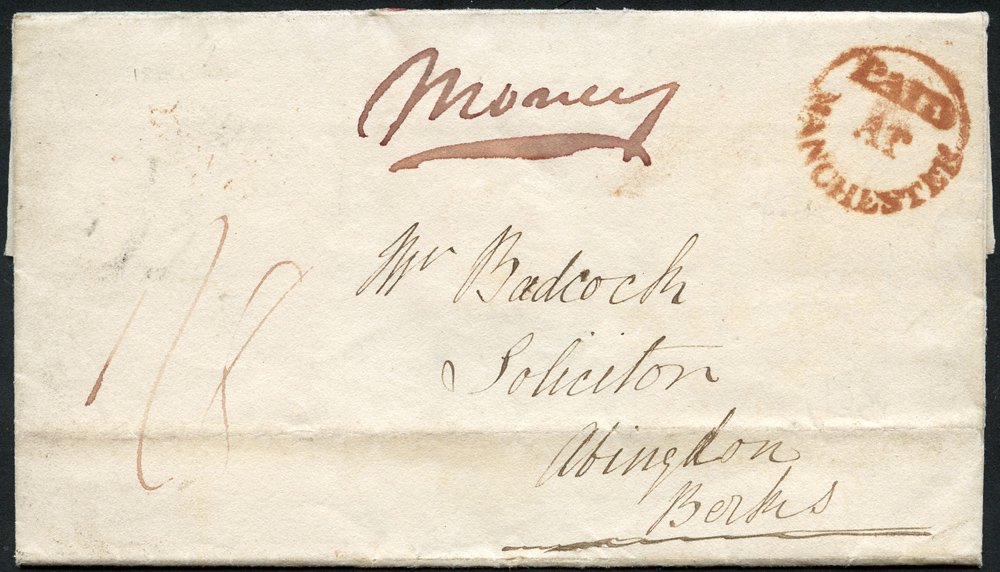 Money
PAID
AT
MANCHESTER
1/8
Mr Badcock
Solicitor
Abingdon
Berks